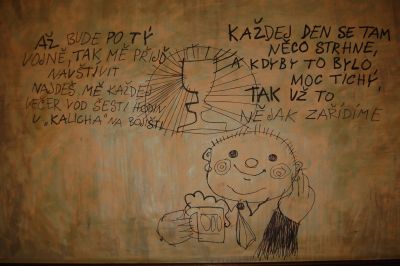 AŽ BUDE PO TÝ
VOJNĚ, TAK MĚ PŘIJĎ
NAVŠTÍVIT
NAJDEŠ MĚ KAŽDEJ
VEČER VOD ŠESTI HODIN
U „KALICHA" NA BOJIŠTI
KAŽDEJ DEN SE TAM
NĚCO STRHNE,
A KDYBY TO BYLO
MOC TICHÝ,
TAK UŽ TO
NĚJAK ZAŘÍDÍME